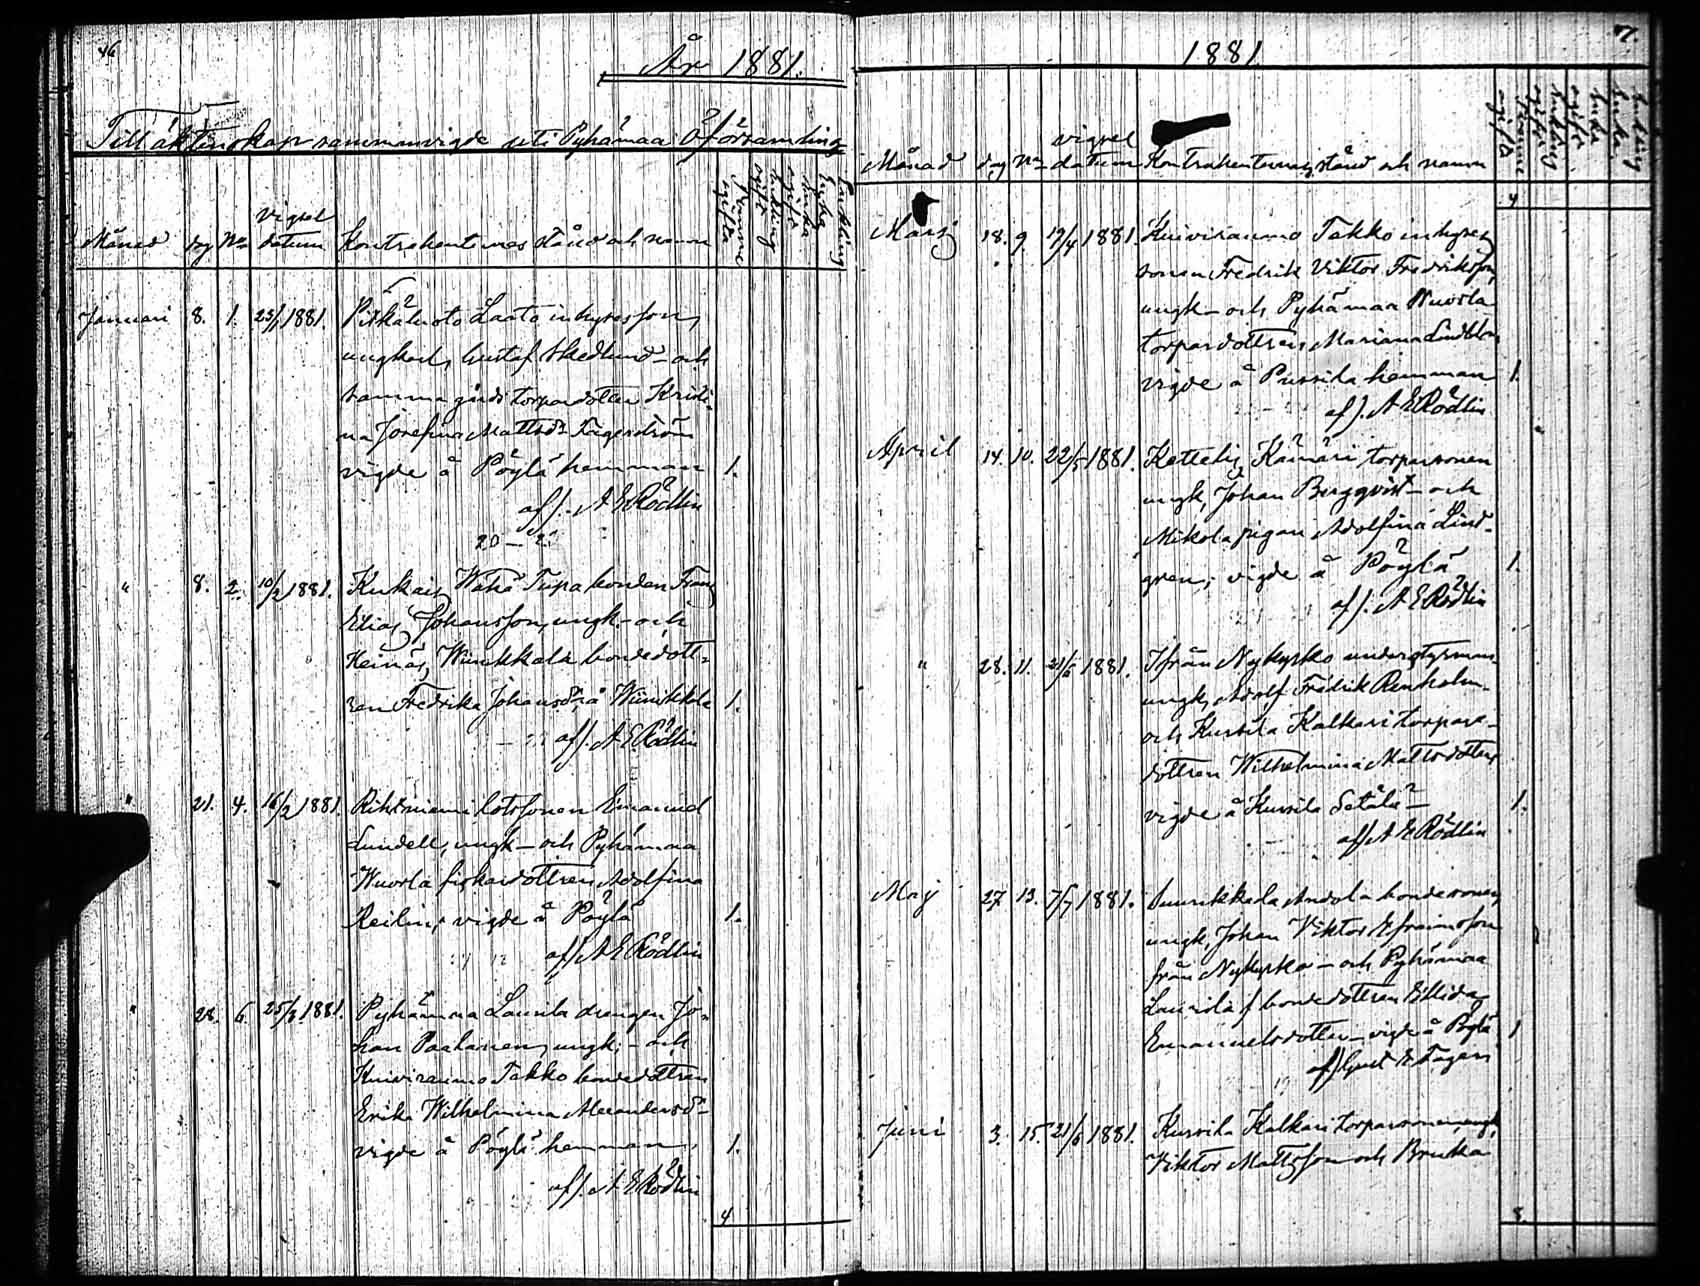 46
År 1881.
Till äktenskap sammanvigde uti Pyhämaa Öförsamling
Månad dag No vigsel datum Kontrahenternas stånd och namn
Januari 8. 1. 23/1 1881. Pitkäluoto Laato inhyresson,
ungkarl, Gustaf Hedlund - och
samma gårds torparedotter Kristi-
na Josefina Mattsdr Fagerström
vigde å Pöylä hemman 1.
af J. A E Rödlin
" 8. 2. 10/2 1881. Kukais Tupa bonden Frans
Elias Johansson, ungk. och
Heinäs Winikkala bondedott-
ren Fredrika Johansdr, å Winikkala 1.
af J. A E Rödlin
" 21. 4. 16/2 1881. Rihtniemi lotssonen Emanuel
Lundell, ungk - och Pyhämaa
Wuorla fiskardottren Adolfina
Reilin, vigde å Pöylä 1.
af J. A E Rödlin
" 28. 6. 25/3 1881. Pyhämaa Laurila drengen Jo-
han Paalanen, ungk. - och
Kuiviraumo Takko bondedottren
Erika Wilhelmina Alexandersdr
vigde å Pöylä hemman, 1.
af J. A E Rödlin
4
1881
Månad dag No vigsel datum Kontrahenternas stånd och namn
4
Marsj 18. 9. 19/4 1881. Kuiviraumo Takko inhyres
sonen Fredrik Viktor Fredriksson,
ungk - och Pyhämaa Wuorla
torpardottren Mariana Lindblom
vigde å Pursila hemman 1.
af J. A E Rödlin
April 14. 10. 22/5 1881. Ketteli Kämäri torparsonen
ungk, Johan Bergqvist - och
Mikola pigan Adolfina Lind-
gren, vigde å Pöylä 1.
af J. A E Rödlin
" 28. 11. 21/5 1881. Ifrån Nykyrko understyrman
ungk, Adolf Fredrik Renholm
och Kursila Kalkari torpare-
dottren Wilhelmina Mattsdotter
vigde å Kursila Setälä 1.
af J. A E Rödlin
Maj 27. 13. 7/7 1881. Suurikkala Andola bondesonen
ungk, Johan Viktor Efraimsson
från Nykyrko - och Pyhämaa
Laurila bondedottren Elida
Emanuelsdotter - vigde å Pöylä 1
af J. Gust E Fagerr
Juni 3. 15. 21/6 1881. Kursila Kalkari torparsonen, ungk,
Viktor Mattsson och Bruka
8.